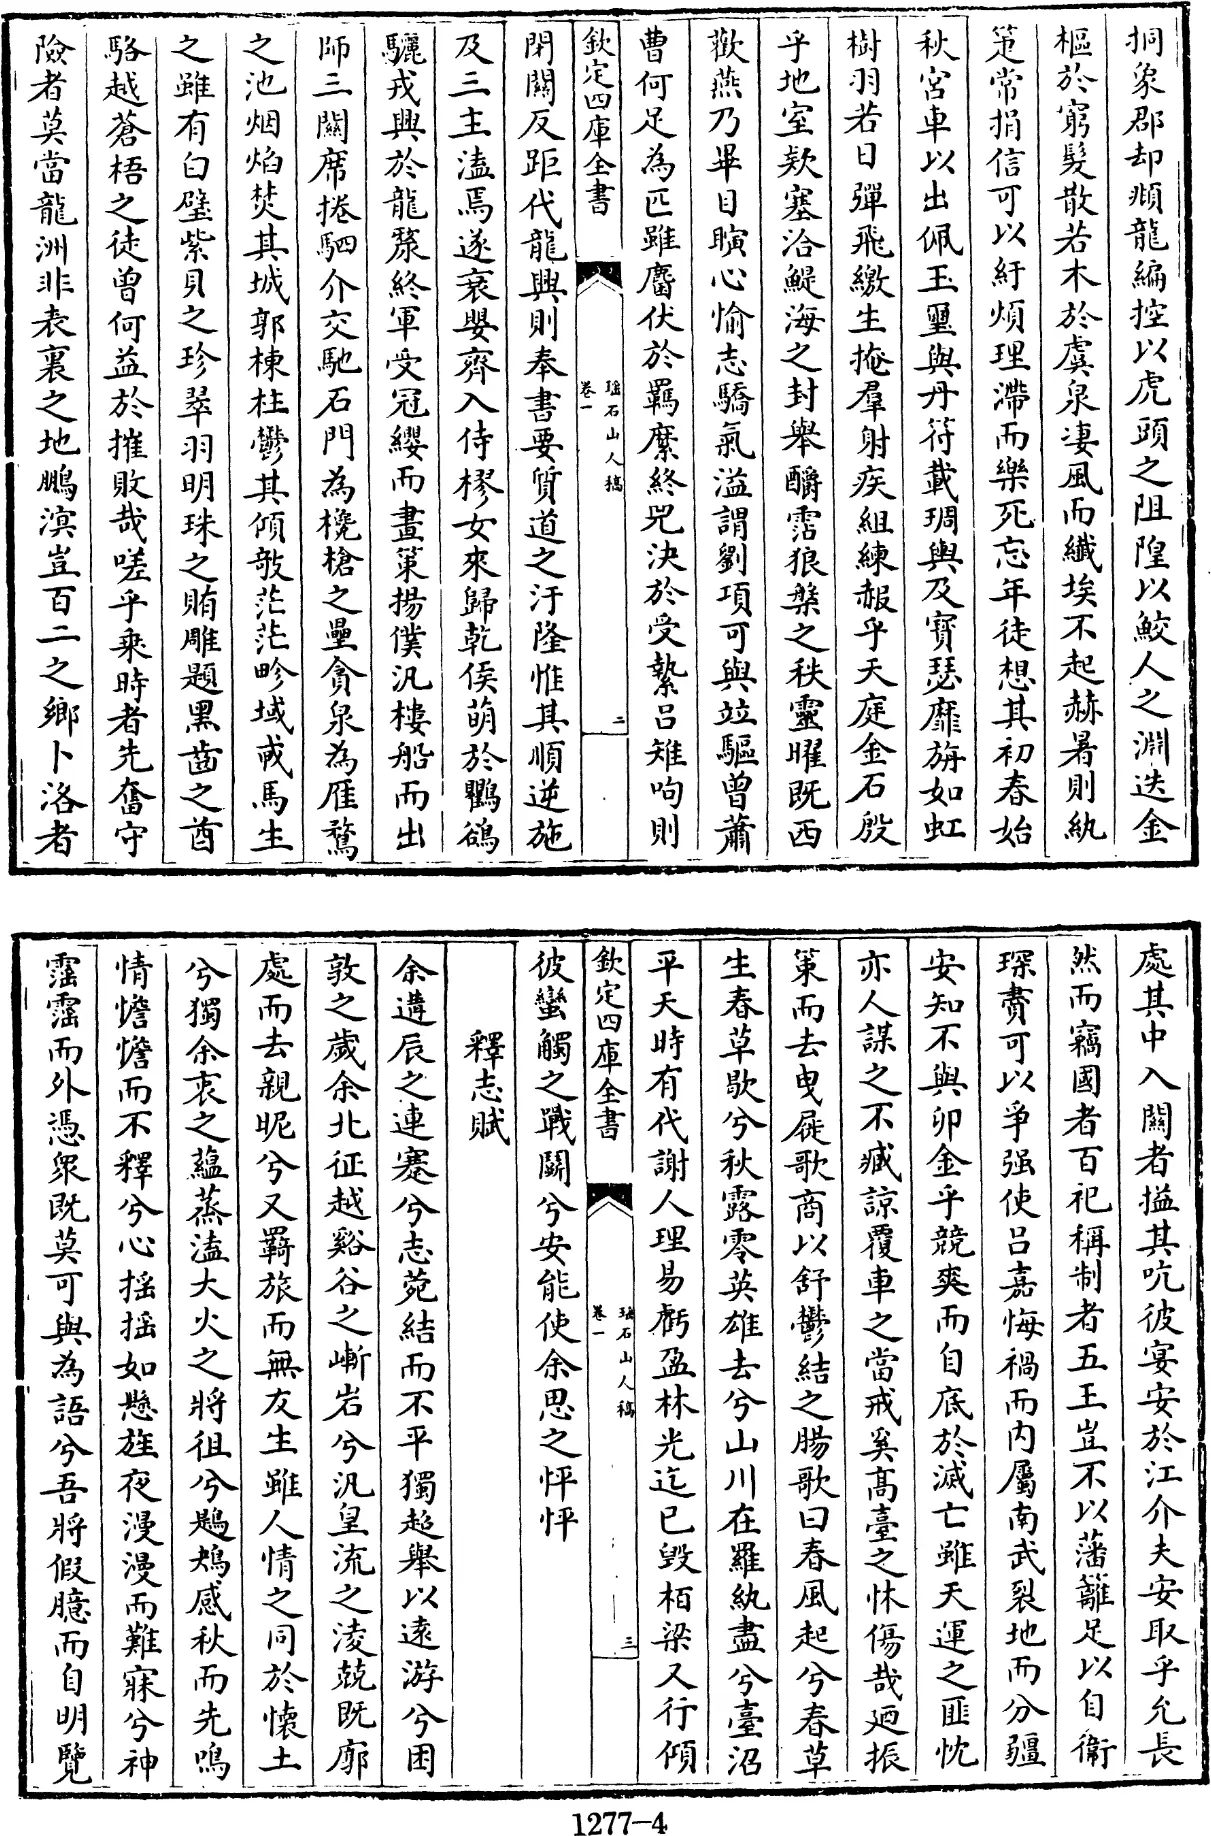 掆象郡却瀕龍編控以虎頭之阻隍以鮫人之淵迭金
樞於窮髮散若木於虞泉凄風而纖埃不起赫暑則紈
箑常捐信可以紓煩理滯而樂死忘年徒想其初春始
秋宮車以出佩玉璽與丹符載琱輿及寳瑟靡旃如虹
樹羽若日彈飛繳生掩羣射疾組練赧乎天庭金石殷
乎地室欵塞洽鯷海之封舉酹霑狼槃之秩靈曜既西
歡燕乃畢目瞚心愉志驕氣溢謂劉項可與竝驅曾蕭
曹何足為匹雖麕伏於羈縻終兕決於受縶呂雉呴則
欽定四庫全書
瑶石山人稿
卷一
二
閉關反距代龍興則奉書要質道之汙隆惟其順逆施
及三主溘焉遂衰嬰齊入侍樛女來歸乾侯萌於鸜鵒
驪戎興於龍漦終軍受冠纓而畫策揚僕汎樓船而出
師三關席捲駟介交馳石門為欃槍之壘貪泉為雁鶩
之池烟焰焚其城郭棟柱鬱其傾攲茫茫畛域戎馬生
之雖有白璧紫貝之珍翠羽明珠之賄雕題黑齒之酋
駱越蒼梧之徒曾何益於摧敗哉嗟乎乘時者先奮守
險者莫當龍洲非表裏之地鵬溟豈百二之鄉卜洛者
處其中入關者搤其吭彼宴安於江介夫安取乎允長
然而竊國者百祀稱制者五王豈不以藩籬足以自衞
琛賮可以爭强使呂嘉悔禍而内屬南武裂地而分疆
安知不與卯金乎競爽而自底於滅亡雖天運之匪忱
亦人謀之不臧諒覆車之當戒奚髙臺之怵傷哉廼振
策而去曳屣歌商以舒鬱結之腸歌曰春風起兮春草
生春草歇兮秋露零英雄去兮山川在羅紈盡兮臺沼
平天時有代謝人理易虧盈林光迄已毀栢梁又行傾
欽定四庫全書
瑶石山人稿
卷一
三
彼蠻觸之戰鬭兮安能使余思之怦怦
釋志賦
余遘辰之連蹇兮志菀結而不平獨超舉以遠游兮困
敦之歲余北征越谿谷之嶄岩兮汎皇流之淩兢既廓
處而去親昵兮又羇旅而無友生雖人情之同於懷土
兮獨余衷之藴蒸溘大火之將徂兮鶗鴂感秋而先鳴
情憺憺而不釋兮心揺揺如懸旌夜漫漫而難寐兮神
霑霑而外馮衆既莫可與為語兮吾將假臆而自明覽
1277-4